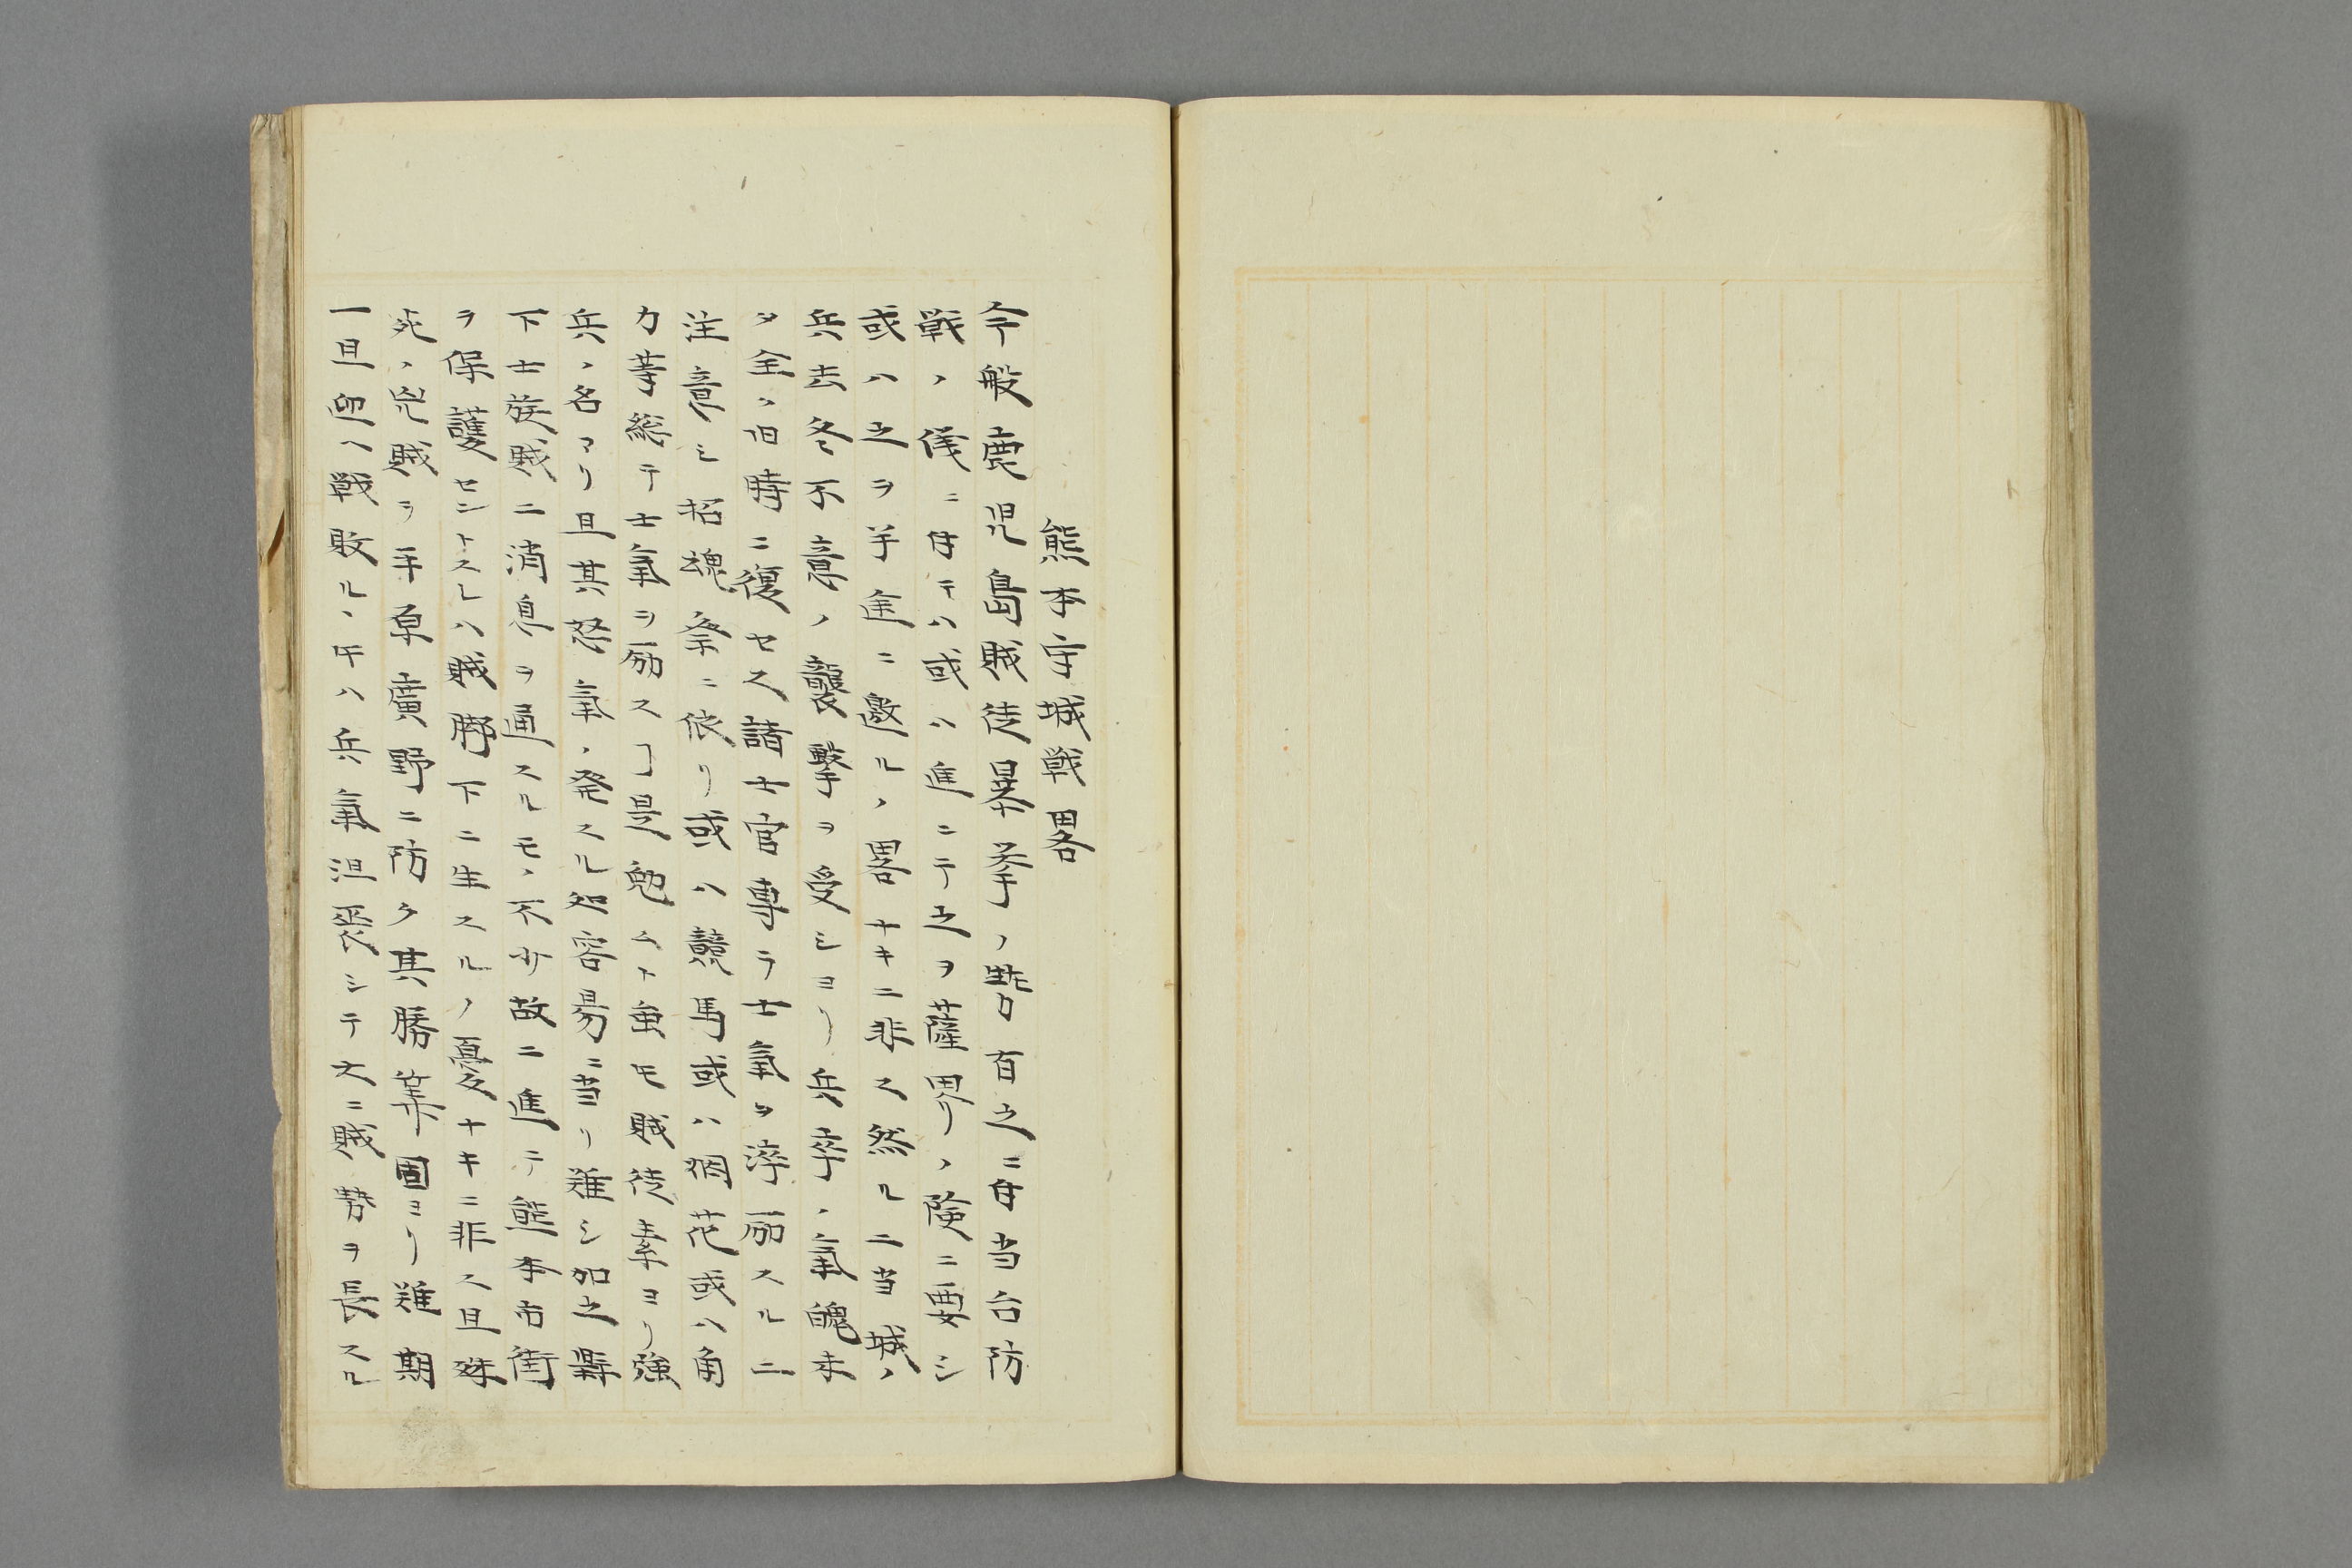 熊本守城戦畧
今般鹿児島賊徒暴挙ノ勢百之ニ付当台防
戦ノ儀ニ付テハ或ハ進ニテ之ヲ薩界ノ険ニ要シ
或ハ之ヲ半途ニ邀ルノ畧ナキニ非ス然ルニ当城ノ
兵去冬不意ノ襲撃ヲ受シヨリ兵卒ノ氣魄未
タ全ク旧時ニ復セス諸士官専ラ士氣ヲ淬励スルニ
注意シ招魂祭ニ依リ或ハ競馬或ハ烟花或ハ角
力等総テ士氣ヲ励スヿ是勉ムト虽モ賊徒素ヨリ強
兵ノ名アリ且其怒氣ノ発スル処容易ニ当リ難シ加之縣
下士族賊ニ消息ヲ通スルモノ不少故ニ進テ熊本市街
ヲ保護セントスレハ賊脚下ニ生スルノ憂ナキニ非ス且殊
死ノ兇賊ヲ平原廣野ニ防ク其勝算固ヨリ難期
一旦迎ヘ戦敗ルヽ牛ハ兵氣沮喪シテ大ニ賊勢ヲ長スル